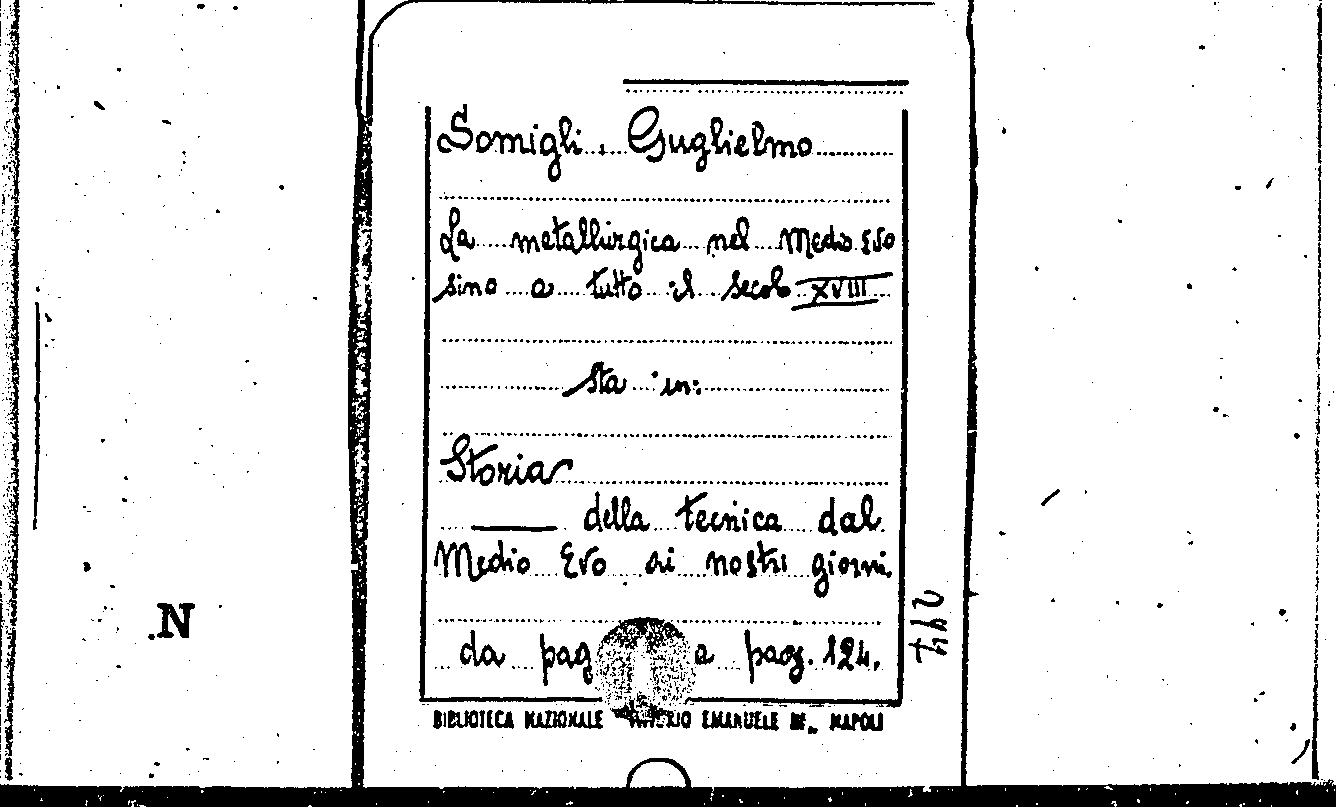 Somigli, Guglielmo
La metallurgica nel Medio Evo
sino a tutto il secolo XVIII
sta in:
Storia
—— della tecnica dal
Medio Evo ai nostri giorni.
da pag a pag. 124.
BIBLIOTECA NAZIONALE EMANUELE III - NAPOLI
244
N.